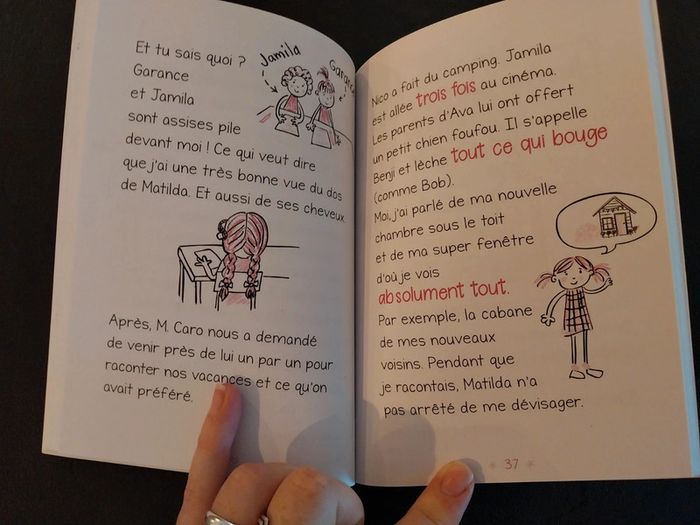 Et tu sais quoi ?
Garance
et Jamila
sont assises pile
devant moi ! Ce qui veut dire
que j'ai une très bonne vue du dos
de Matilda. Et aussi de ses cheveux.
Jamila
Garance
Après, M. Caro nous a demandé
de venir près de lui un par un pour
raconter nos vacances et ce qu'on
avait préféré.
Nico a fait du camping. Jamila
est allée trois fois au cinéma.
Les parents d'Ava lui ont offert
un petit chien foufou. Il s'appelle
Benji et lèche tout ce qui bouge
(comme Bob).
Moi, j'ai parlé de ma nouvelle
chambre sous le toit
et de ma super fenêtre
d'où je vois
absolument tout.
Par exemple, la cabane
de mes nouveaux
voisins. Pendant que
je racontais, Matilda n'a
pas arrêté de me dévisager.
37